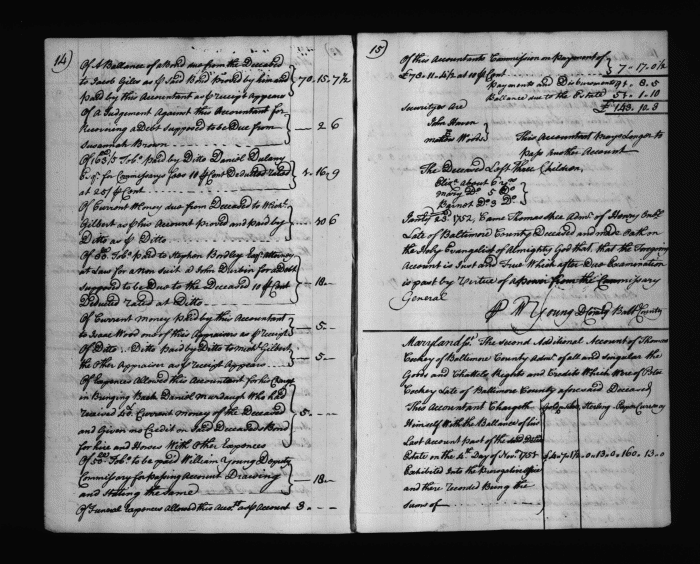 14)
Of A Ballance of a Bond due from the Deceased
to Jacob Giles as p Said Bond proved by him and 70. 15. 7½
paid by this Accountant as p receipt Appears
Of a Judgement Against this Accountant for
Receiving a Debt supposed to be Due from — 2 6
Susannah Brown
Of 1031/2 Tob.º paid by Ditto Daniel Dulany
Esq.r for Commissarys fees 10 p Cent Deducted rated 4. 16. 9
at 25/ p Cent
Of Current Money due from Deceased to Mich.l
Gilbert as p his Account proved and paid by — 10 6
Ditto as p Ditto
Of Tob.º paid to Stephen Bordley Esq.r Attorney
at Law for a Non Suit a John Durbin for a Debt
supposed to be Due to the Deceased 10 p Cent — 18. —
Deducted rated at Ditto
Of Current Money paid by this Accountant
to Isaac Wood one of this Appraisors as p receipt — 5 —
Of Ditto . . Ditto Paid by Ditto to Mich.l Gilbert
the Other Appraisor as p receipt Appears — 5 —
Of Expences Allowed this Accountant for his Charge
in Bringing Back Daniel who had
received Current Money of the Deceased 5. — —
and Given no Credit on Said Deceaseds Bond
for hire and Horses With Other Expences
Of Tob.º to be paid William Young Deputy
Commissary for passing Account Drawing — 18 —
and Stating the Same
Of Funeral Expences allowed this Acco.t as p Account 3. — —
15)
Of this Accountants Commission on payment of
£73. 11. 4½ at 10 p Cent 7 . 17. 0½
Payments and Disbursements 91. 8. 5
Ballance due to the Estate 51. 1. 10
£ 143. 10. 3
Securitys Are
John Hawn
Wood
This Accountant prays Longer to
pass Another Account
The Deceased Left Three Children,
Eliz.a about 6 y.rs
Mary D.º 5 D.º
Garnot D.º 3 D.º
Jan.ry 23.d 1752, Came Thomas Adm.r of Henry
Late of Baltimore County Deceased and made Oath on
the Holy Evangelist of Almighty God that that the Foregoing
Account is Just and True Which after Due Examination
is past by Vertue of a power from the Commissary
General
p W Young D Com.y Balt.o County
Maryland ss. The Second Additional Account of Thomas
Cockey of Baltimore County Adm.r of all and Singular the
Goods and Chattels Rights and Credits Which Were of Peter
Cockey Late of Baltimore County aforesaid Deceased
This Accountant Chargeth Sterling Paper Currency
Himself With the Ballance of his
Last Account part of the said Dec.ds
Estate on the 4th Day of Nov.r 1751
Exhibited Into the Prerogative Office
and there recorded Being the
Sum of